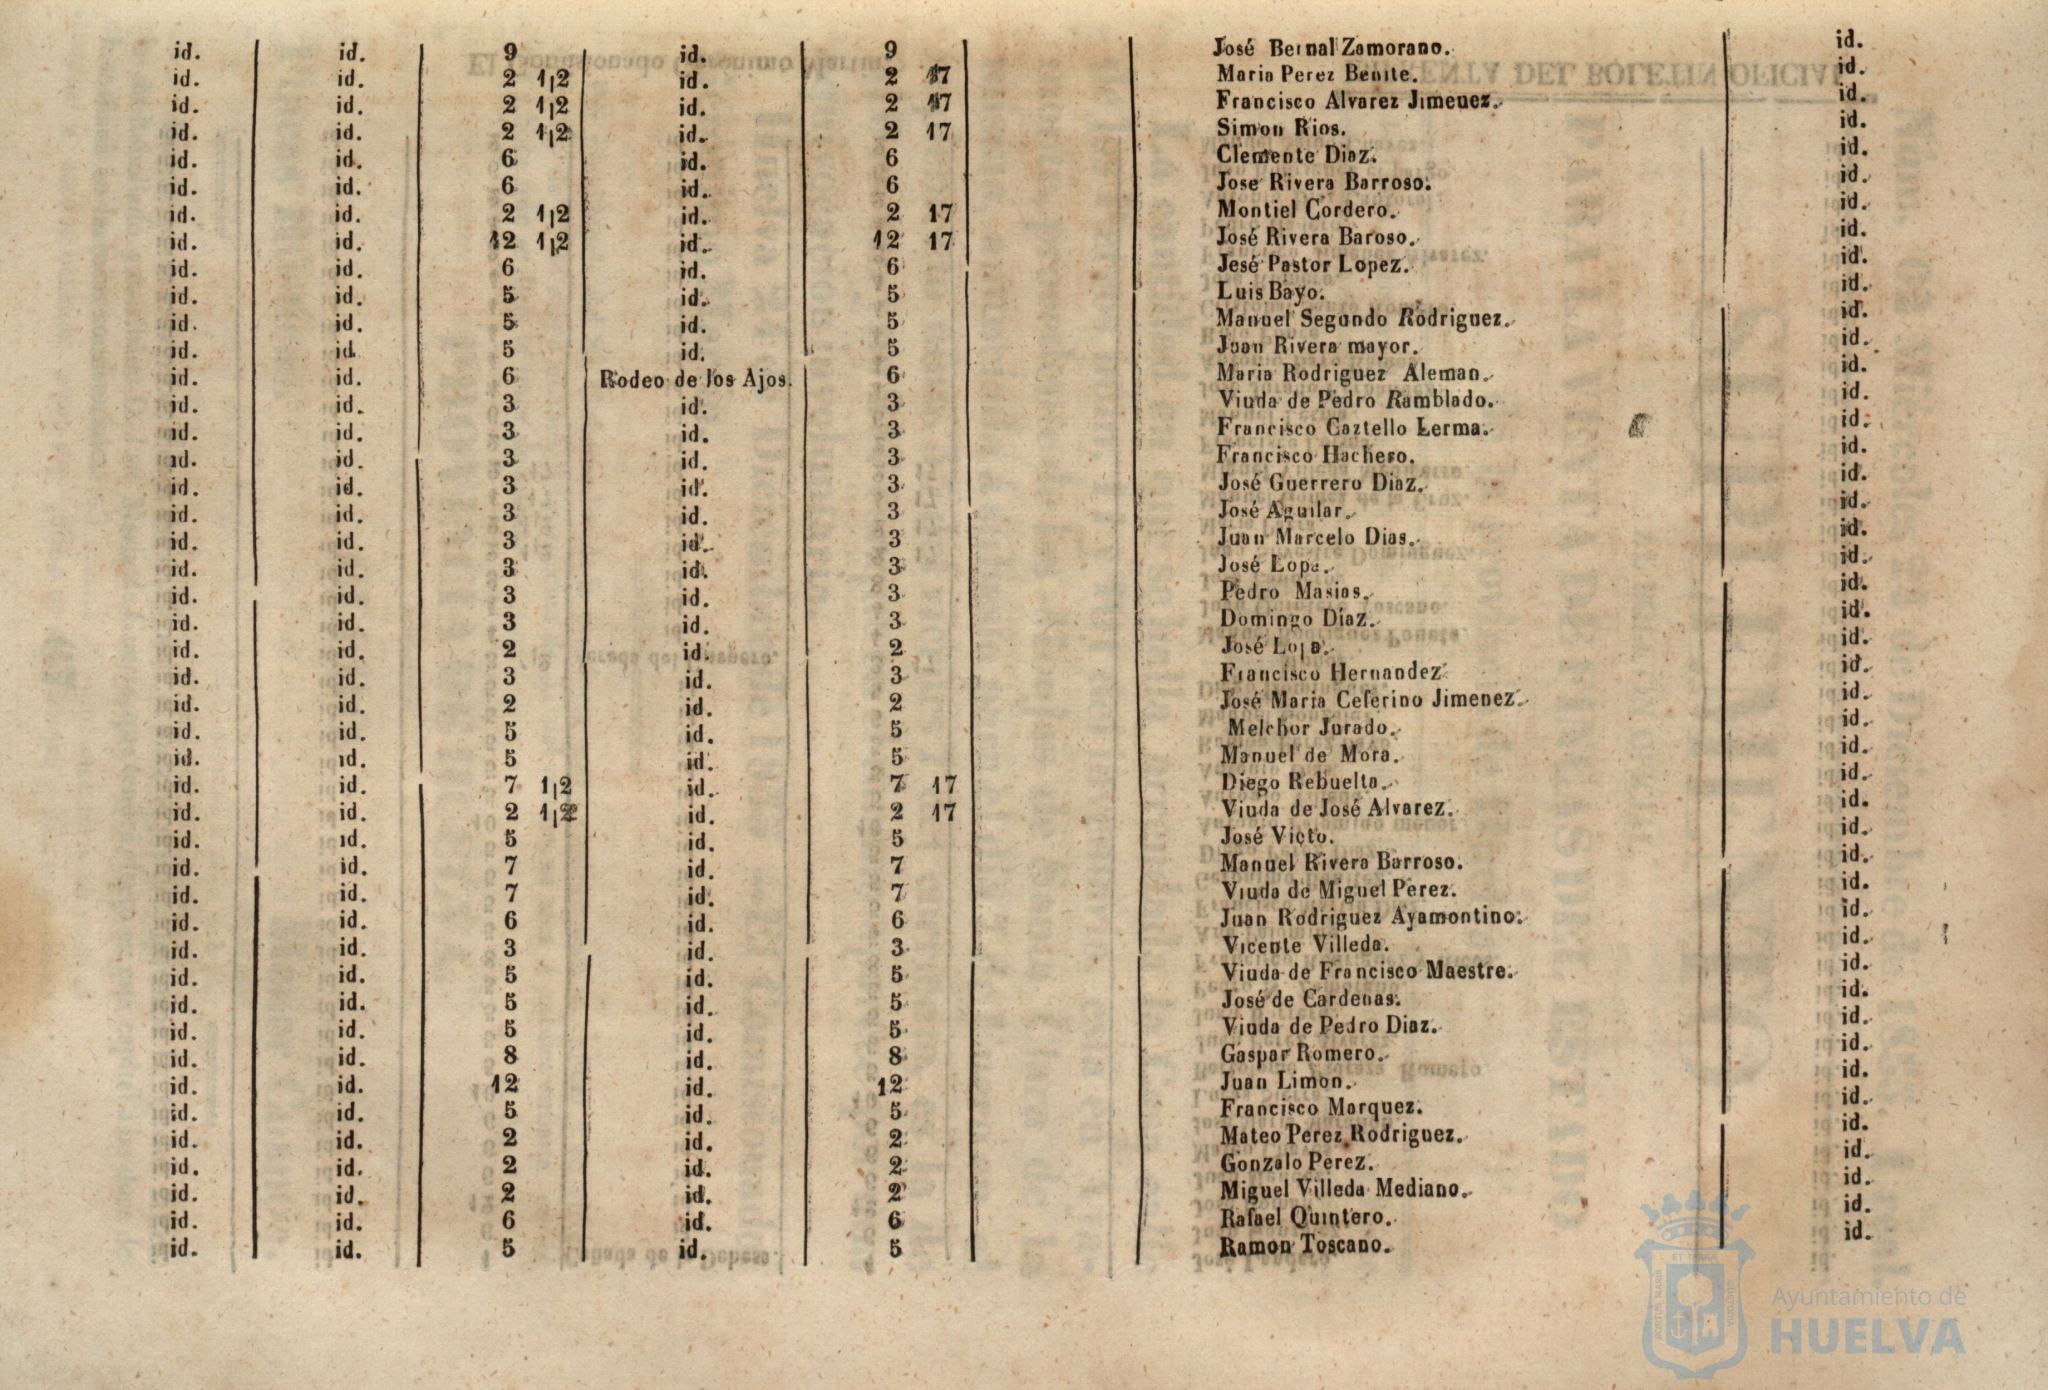 id. id. 9 id. 9 José Bernal Zamorano. id.
id. id. 2 1¡2 id. 2 17 Maria Perez Benite. id.
id. id. 2 1¡2 id. 2 17 Francisco Alvarez Jimenez. id.
id. id. 2 1¡2 id. 2 17 Simon Rios. id.
id. id. 6 id. 6 Clemente Diaz. id.
id. id. 6 id. 6 Jose Rivera Barroso. id.
id. id. 2 1¡2 id. 2 17 Montiel Cordero. id.
id. id. 12 1¡2 id. 12 17 José Rivera Baroso. id.
id. id. 6 id. 6 Jesé Pastor Lopez. id.
id. id. 5 id. 5 Luis Bayo. id.
id. id. 5 id. 5 Manuel Segundo Rodriguez. id.
id. id. 5 id. 5 Juan Rivera mayor. id.
id. id. 6 Rodeo de los Ajos. 6 Maria Rodriguez Aleman. id.
id. id. 3 id. 3 Viuda de Pedro Ramblado. id.
id. id. 3 id. 3 Francisco Caztello Lerma. id.
id. id. 3 id. 3 Francisco Hachero. id.
id. id. 3 id. 3 José Guerrero Diaz. id.
id. id. 3 id. 3 José Aguilar. id.
id. id. 3 id. 3 Juan Marcelo Dias. id.
id. id. 3 id. 3 José Lopa. id.
id. id. 3 id. 3 Pedro Masias. id.
id. id. 3 id. 3 Domingo Díaz. id.
id. id. 2 id. 2 José id.
id. id. 3 id. 3 Francisco Hernandez id.
id. id. 2 id. 2 José Maria Ceferino Jimenez. id.
id. id. 5 id. 5 Melchor Jurado. id.
id. id. 5 id. 5 Manuel de Mora. id.
id. id. 7 1¡2 id. 7 17 Diego Rebuelta. id.
id. id. 2 1¡2 id. 2 17 Viuda de José Alvarez. id.
id. id. 5 id. 5 José Victo. id.
id. id. 7 id. 7 Manuel Rivera Barroso. id.
id. id. 7 id. 7 Viuda de Miguel Perez. id.
id. id. 6 id. 6 Juan Rodriguez Ayamontino. id.
id. id. 3 id. 3 Vicente Villeda. id.
id. id. 5 id. 5 Viuda de Francisco Maestre. id.
id. id. 5 id. 5 José de Cardenas. id.
id. id. 5 id. 5 Viuda de Pedro Diaz. id.
id. id. 8 id. 8 Gaspar Romero. id.
id. id. 12 id. 12 Juan Limon. id.
id. id. 5 id. 5 Francisco Marquez. id.
id. id. 2 id. 2 Mateo Perez Rodriguez. id.
id. id. 2 id. 2 Gonzalo Perez. id.
id. id. 2 id. 2 Miguel Villeda Mediano. id.
id. id. 6 id. 6 Rafael Quintero. id.
id. id. 5 id. 5 Ramon Toscano. id.
Ayuntamiento de
HUELVA